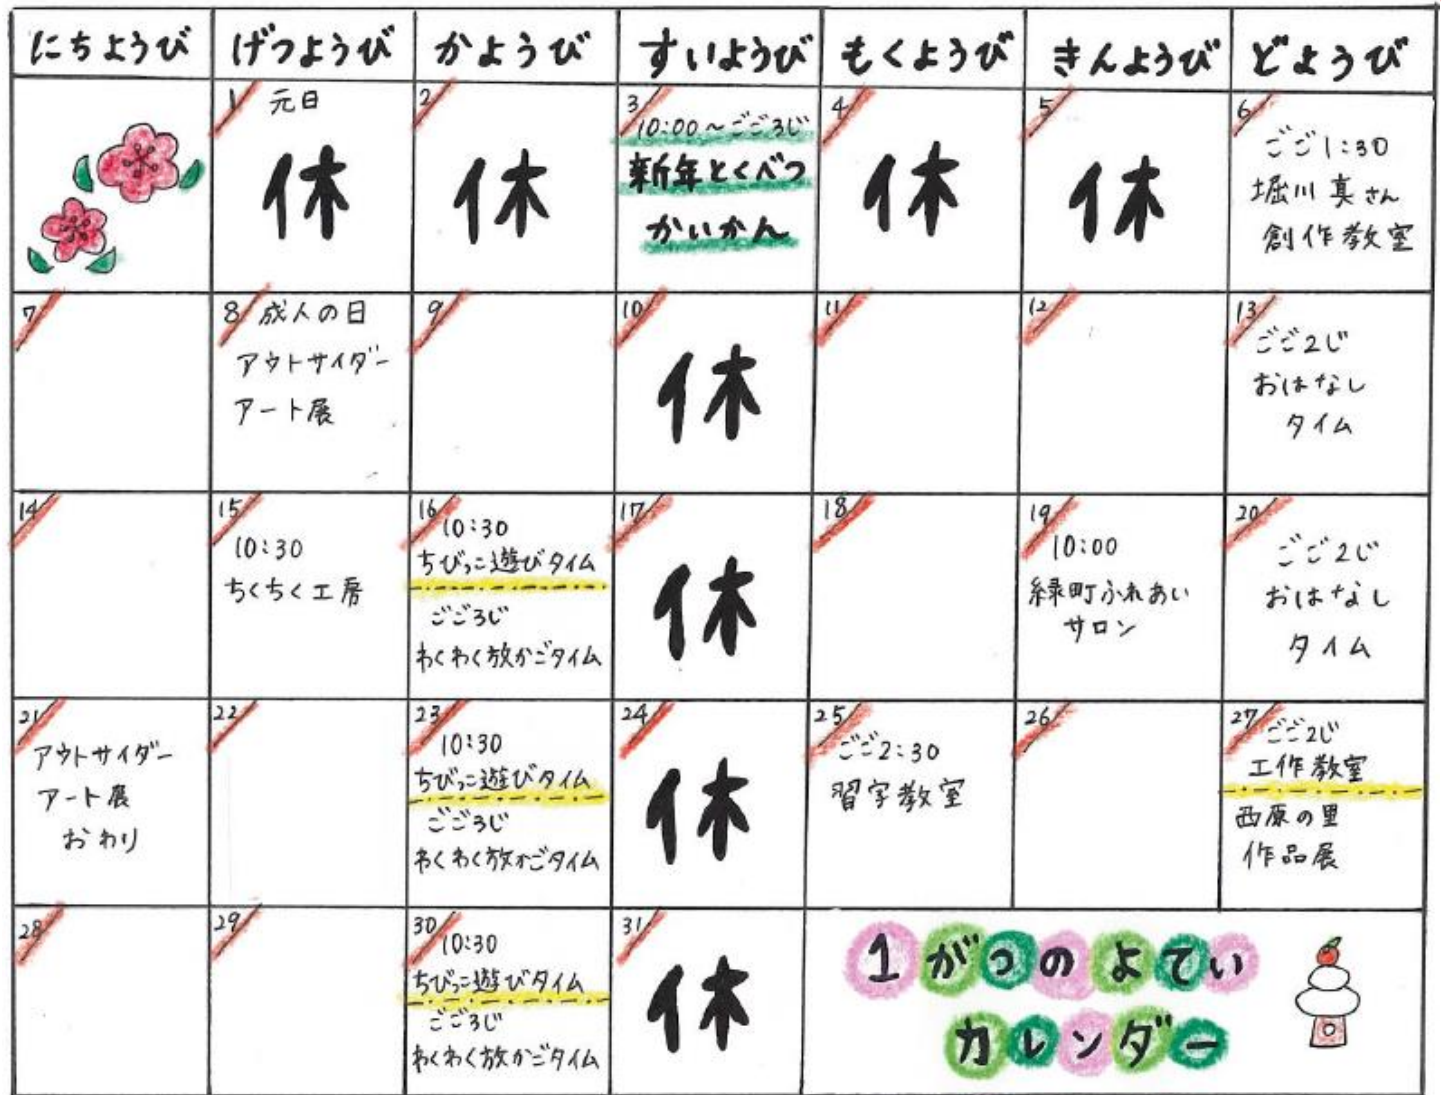 にちようび
げつようび
かようび
すいようび
もくようび
きんようび
どようび
1 元日
休
2
休
3
10:00～ごご3じ
新年とくべつ
かいかん
4
休
5
休
6
ごご1:30
堀川真さん
創作教室
7
8 成人の日
アウトサイダー
アート展
9
10
休
11
12
13
ごご2じ
おはなし
タイム
14
15
10:30
ちくちく工房
16
10:30
ちびっこ遊びタイム
ごご3じ
わくわく放かごタイム
17
休
18
19
10:00
緑町ふれあい
サロン
20
ごご2じ
おはなし
タイム
21
アウトサイダー
アート展
おわり
22
23
10:30
ちびっこ遊びタイム
ごご3じ
わくわく放かごタイム
24
休
25
ごご2:30
習字教室
26
27
ごご2じ
工作教室
西原の里
作品展
28
29
30
10:30
ちびっこ遊びタイム
ごご3じ
わくわく放かごタイム
31
休
1がつのよてい
カレンダー